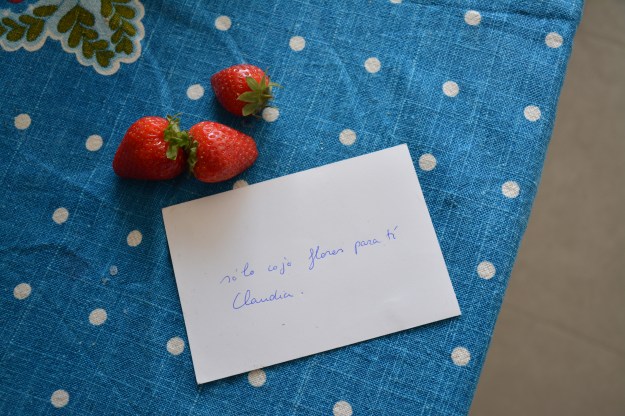 sólo cojo flores para tí
Claudia.